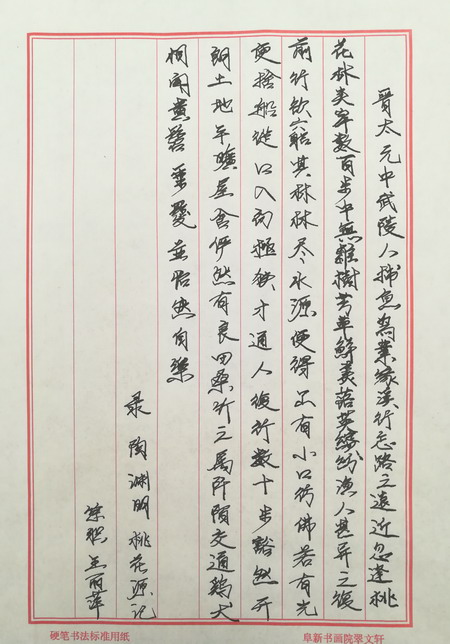 晋太元中武陵人捕鱼為業缘溪行忘路之遠近忽逢桃
花林夹岸数百步中無雜樹芳草鲜美落英缤纷渔人甚异之復
前行欲窮其林林尽水源便得山有小口彷佛若有光
便捨船從口入初極狭才通人復行数十步豁然开
朗土地平曠屋舍俨然有良田桑竹之属阡陌交通鸡犬
相闻黄髮垂髫並怡然自樂
录陶渊明桃花源记
王丽萍
硬笔书法标准用纸
阜新书画院翠文轩